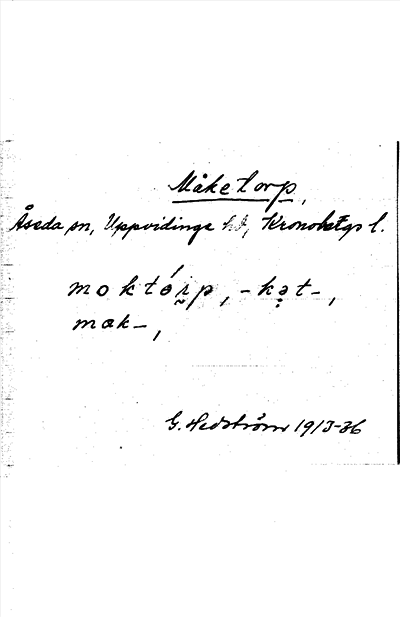 Måketorp,
Åseda sn, Uppvidinge hd, Kronobergs l.
moktórp, -kət-,
mak-,
G. Hedström 1913-36